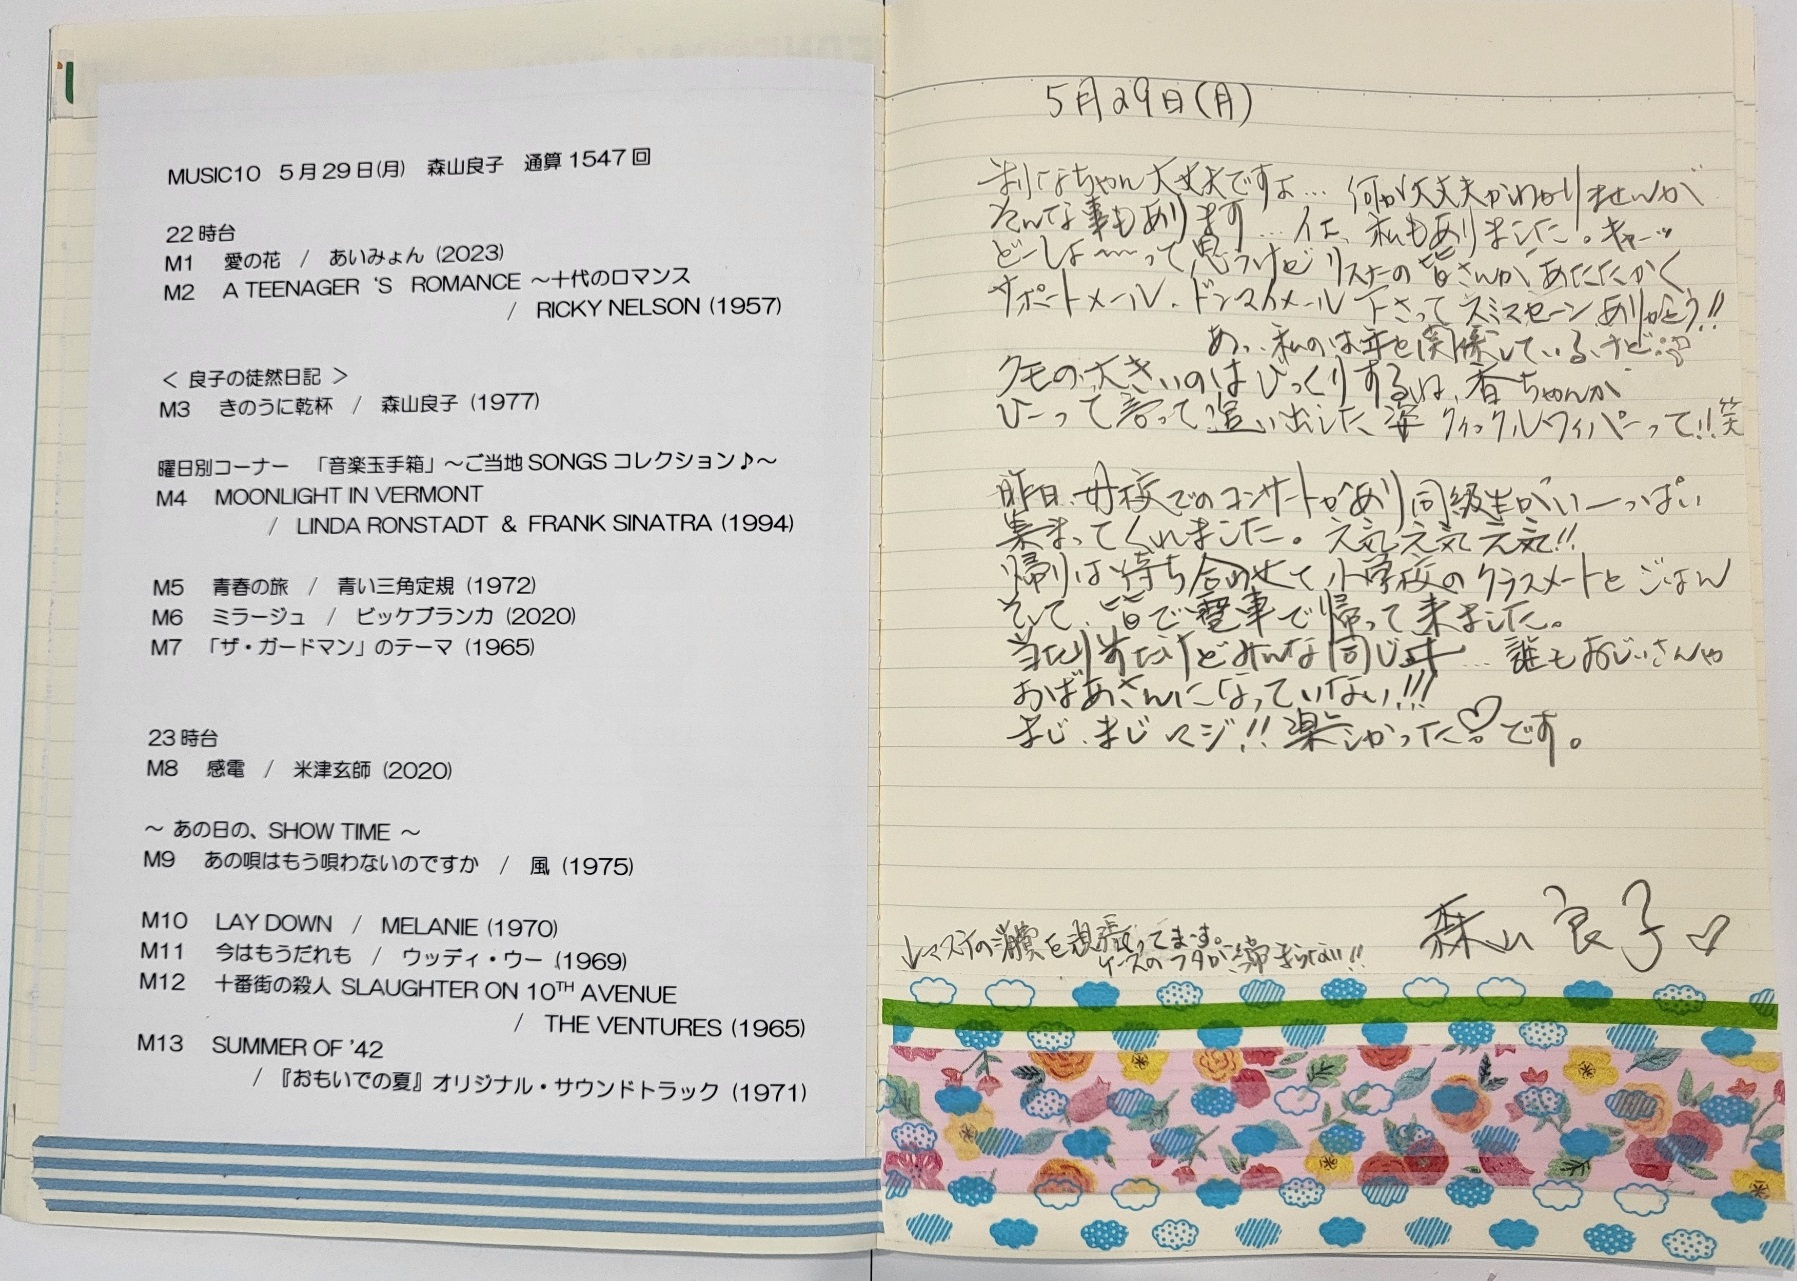 MUSIC10 5月29日(月) 森山良子 通算1547回
22時台
M1 愛の花 / あいみょん (2023)
M2 A TEENAGER 'S ROMANCE ～十代のロマンス
/ RICKY NELSON (1957)
＜ 良子の徒然日記 ＞
M3 きのうに乾杯 / 森山良子 (1977)
曜日別コーナー 「音楽玉手箱」～ご当地SONGSコレクション♪～
M4 MOONLIGHT IN VERMONT
/ LINDA RONSTADT & FRANK SINATRA (1994)
M5 青春の旅 / 青い三角定規 (1972)
M6 ミラージュ / ビッケブランカ (2020)
M7 「ザ・ガードマン」のテーマ (1965)
23時台
M8 感電 / 米津玄師 (2020)
～ あの日の、SHOW TIME ～
M9 あの唄はもう唄わないのですか / 風 (1975)
M10 LAY DOWN / MELANIE (1970)
M11 今はもうだれも / ウッディ・ウー (1969)
M12 十番街の殺人 SLAUGHTER ON 10TH AVENUE
/ THE VENTURES (1965)
M13 SUMMER OF '42
/ 『おもいでの夏』オリジナル・サウンドトラック (1971)
5月29日(月)
まりなちゃん大丈夫ですよ... 何が大丈夫かわかりませんが
そんな事もあります... 私もありました。キャーッ
どーしよ〜〜って思うけどリスナーの皆さんがあたたかく
サポートメール、ドンマイメール下さってスミマセーン ありがとう!!
あっ、私のは年も関係しているけど
クモの大きいのはびっくりするね、香ちゃんが
ひーって言って追い出した姿 クイックルワイパーって!!笑
昨日、母校でのコンサートがあり同級生がいーっぱい
集まってくれました。元気元気元気!!
帰りは待ち合わせて小学校のクラスメートとごはん
そして、皆で電車で帰って来ました。
当たり前だけどみんな同じ年... 誰もおじいさんや
おばあさんになっていない!!!
まじ、まじマジ!! 楽しかった♡です。
森山良子♡
↓マステの消費を頑張ってます。
ケースのフタが閉まらない!!